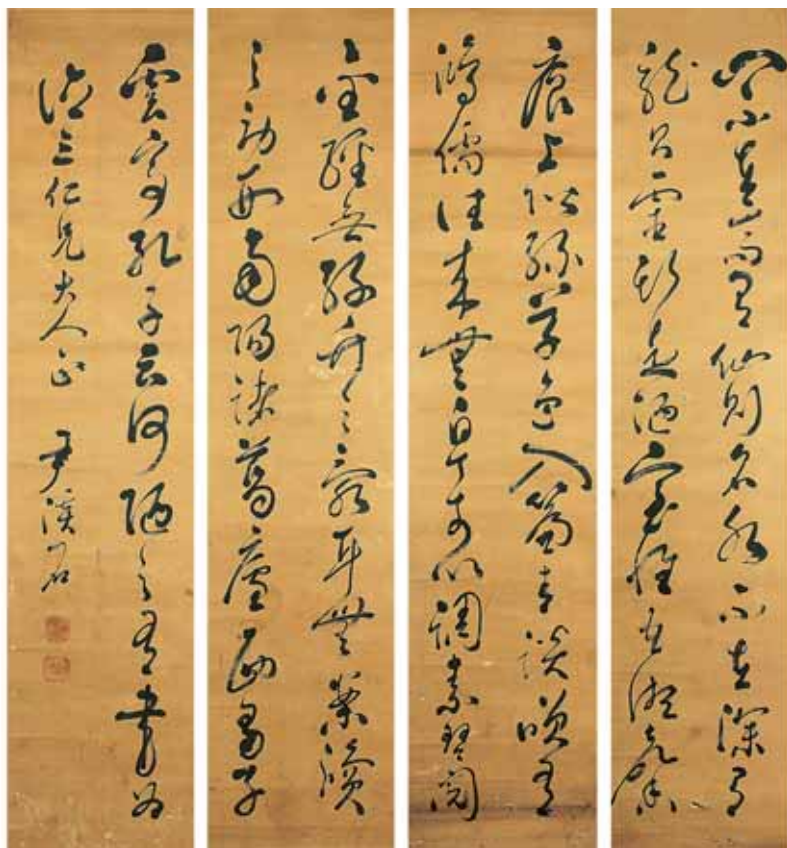 山不在高有仙則名水不在深有
龍則靈斯是陋室惟吾德馨苔
痕上階綠草色入簾青談笑有
鴻儒往來無白丁可以調素琴閱
金經無絲竹之亂耳無案牘
之勞形南陽諸葛廬西蜀子
雲亭孔子云何陋之有書為
三仁兄大人正 尹溪石